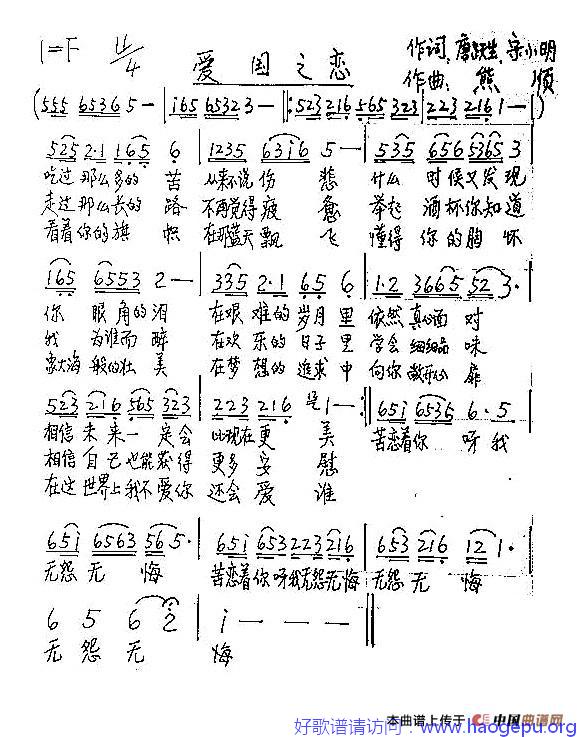 1=F 4/4 爱国之恋 作词
作曲：熊
(555 65365— | i65 65323— ‖: 523216 565323 | 223 2161— |)
525 2·1 165 6 | 1235 63i6 5— | 535 656 5365 3
吃过那么多的苦 从来不说伤悲 什么时候又发现
走过那么长的路 不再觉得疲惫 举起酒杯你知道
看着你的旗帜 在那蓝天飘飞 懂得你的胸怀
165 6553 2— | 335 2·1 65 6 | 1·2 36655 52 3·
你眼角的泪 在艰难的岁月里 依然真心面对
我为谁而醉 在欢乐的日子里 学会细细品味
象大海般的壮美 在梦想的追求中 向你敞开心扉
523 216 565 323 | 223 216 1— :‖ 65i 6535 6·5
相信未来一定会 比现在更美 苦恋着你呀我
相信自己也能获得 更多安慰
在这世界上我不爱你 还会爱谁
65i 6563 56 5· | 65i 653 223 216 | 653 216 12 1·
无怨无悔 苦恋着你呀我无怨无悔 无怨无悔
6 5 6 2 | i — — — ‖
无怨无悔
本曲谱上传于 中国曲谱网
好歌谱请访问：www.haogepu.org